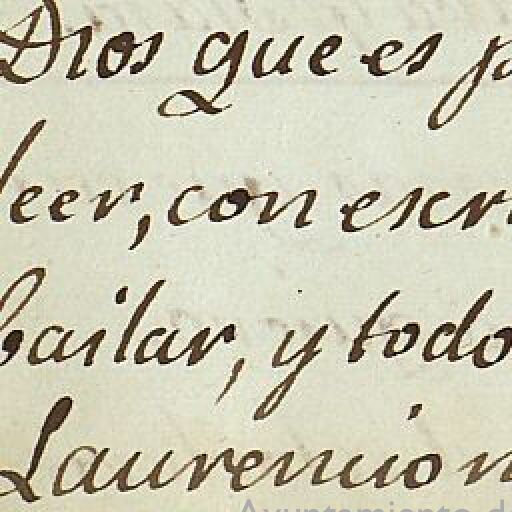 Dios que es p
leer, con escri
bailar, y todo
Laurencio n
Ayuntamiento de